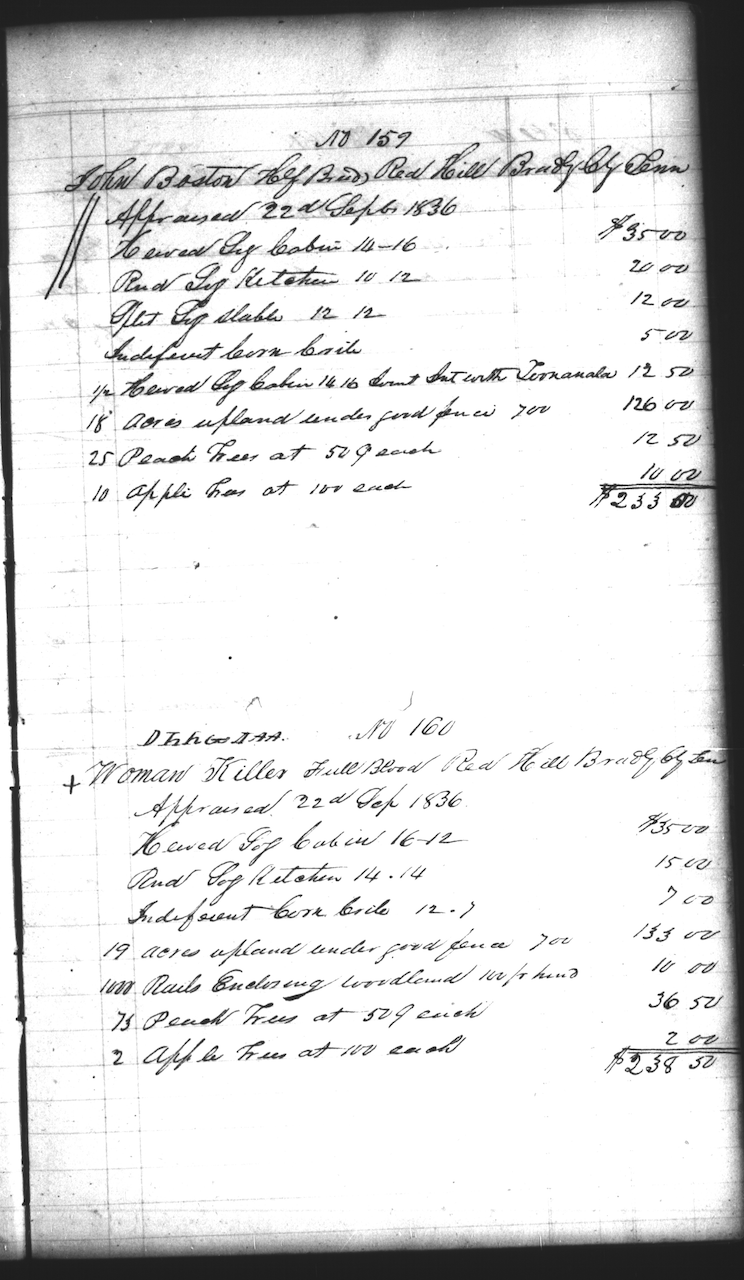 No 159
John Boston Hlf Bred, Red Hill Bradly Cty Tenn
Appraised 22d Sepbr 1836
Hewed Log Cabin 14-16 $35 00
Rnd Log Kitchen 10 12 20 00
Split Log stable 12 12 12 00
Indiferent Corn Crib 5 00
1/2 Hewed Log Cabin 14 16 Joint Int with 12 50
18 acres upland under good fence 700 126 00
25 Peach Trees at 50 ¢ each 12 50
10 Apple Trees at 100 each 10 00
$233 00
No 160
+ Woman Killer Full Blood Red Hill Bradly Cty Ten
Appraised 22d Sep 1836
Hewed Log Cabin 16-12 $35 00
Rnd Log Kitchen 14.14 15 00
Indiferent Corn Crib 12.7 7 00
19 acres upland under good fence 700 133 00
1000 Rails Enclosing woodland 100 pr hund 10 00
73 Peach Trees at 50 ¢ each 36 50
2 Apple Trees at 100 each 2 00
$238 50